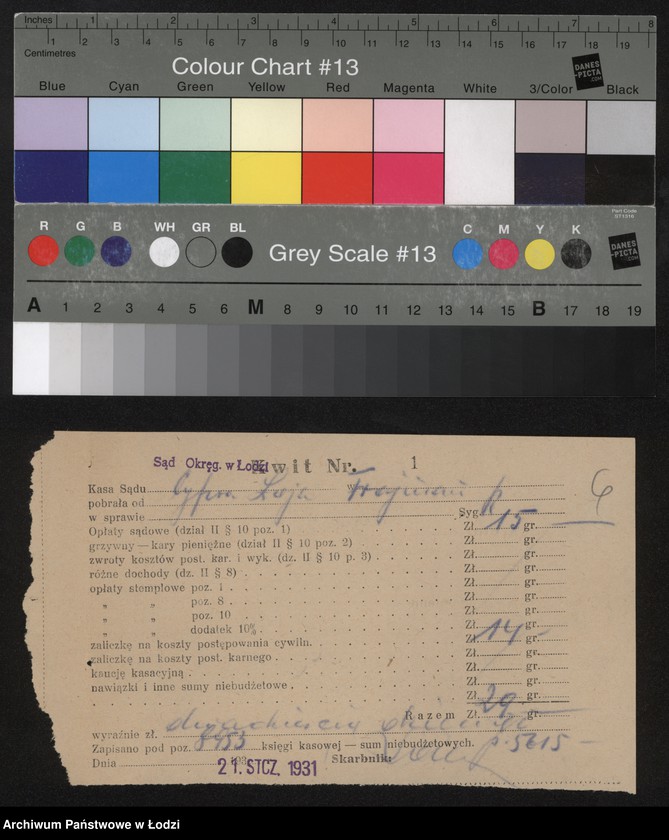 Inches 1 2 3 4 5 6 7 8
Centimetres 1 2 3 4 5 6 7 8 9 10 11 12 13 14 15 16 17 18 19
Colour Chart #13
DANES
-PICTA
.COM
Blue Cyan Green Yellow Red Magenta White 3/Color Black
Part Code
ST1316
R G B WH GR BL Grey Scale #13 C M Y K
DANES
-PICTA
.COM
A 1 2 3 4 5 6 M 8 9 10 11 12 13 14 15 B 17 18 19
Sąd Okręg. w Łodzi
Kwit Nr. 1
6
Kasa Sądu w
pobrała od
w sprawie Syg
Opłaty sądowe (dział II § 10 poz. 1) Zł. 15 gr.
grzywny — kary pieniężne (dział II § 10 poz. 2) Zł. gr.
zwroty kosztów post. kar. i wyk. (dz. II § 10 p. 3) Zł. gr.
różne dochody (dz. II § 8) Zł. gr.
opłaty stemplowe poz. 1 Zł. gr.
„ „ poz. 8 Zł. gr.
„ „ poz. 10 Zł. gr.
„ „ dodatek 10% Zł. gr.
zaliczkę na koszty postępowania cywiln. Zł. 14 gr. -
zaliczkę na koszty post. karnego Zł. gr.
kaucję kasacyjną Zł. gr.
nawiązki i inne sumy niebudżetowe Zł. gr.
Razem Zł. 29 gr. -
wyraźnie zł. dwadzieścia dziewięć
Zapisano pod poz. 8453 księgi kasowej — sum niebudżetowych. p. 5615 -
Dnia 193 Skarbnik:
21. STCZ. 1931
Archiwum Państwowe w Łodzi